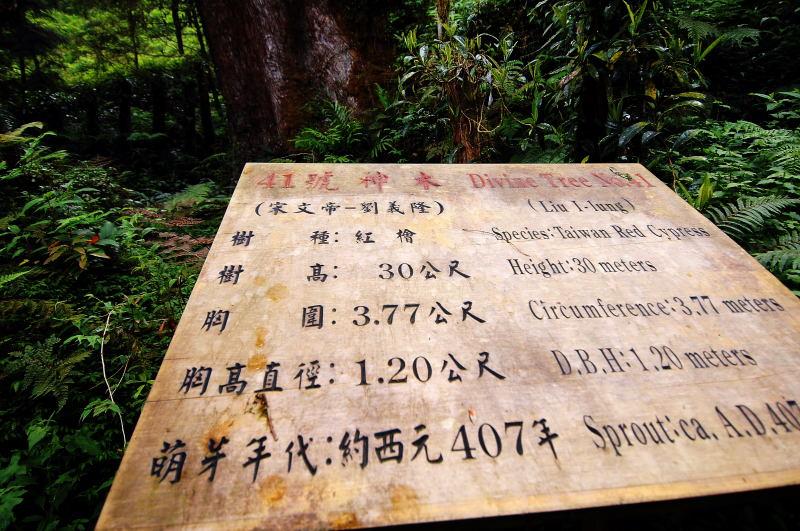 41號神木 Divine Tree No.41
(宋文帝-劉義隆) (Liu I-lung)
樹種:紅檜 Species:Taiwan Red Cypress
樹高:30公尺 Height:30 meters
胸圍:3.77公尺 Circumference:3.77 meters
胸高直徑:1.20公尺 D.B.H:1.20 meters
萌芽年代:約西元407年 Sprout:ca. A.D.407